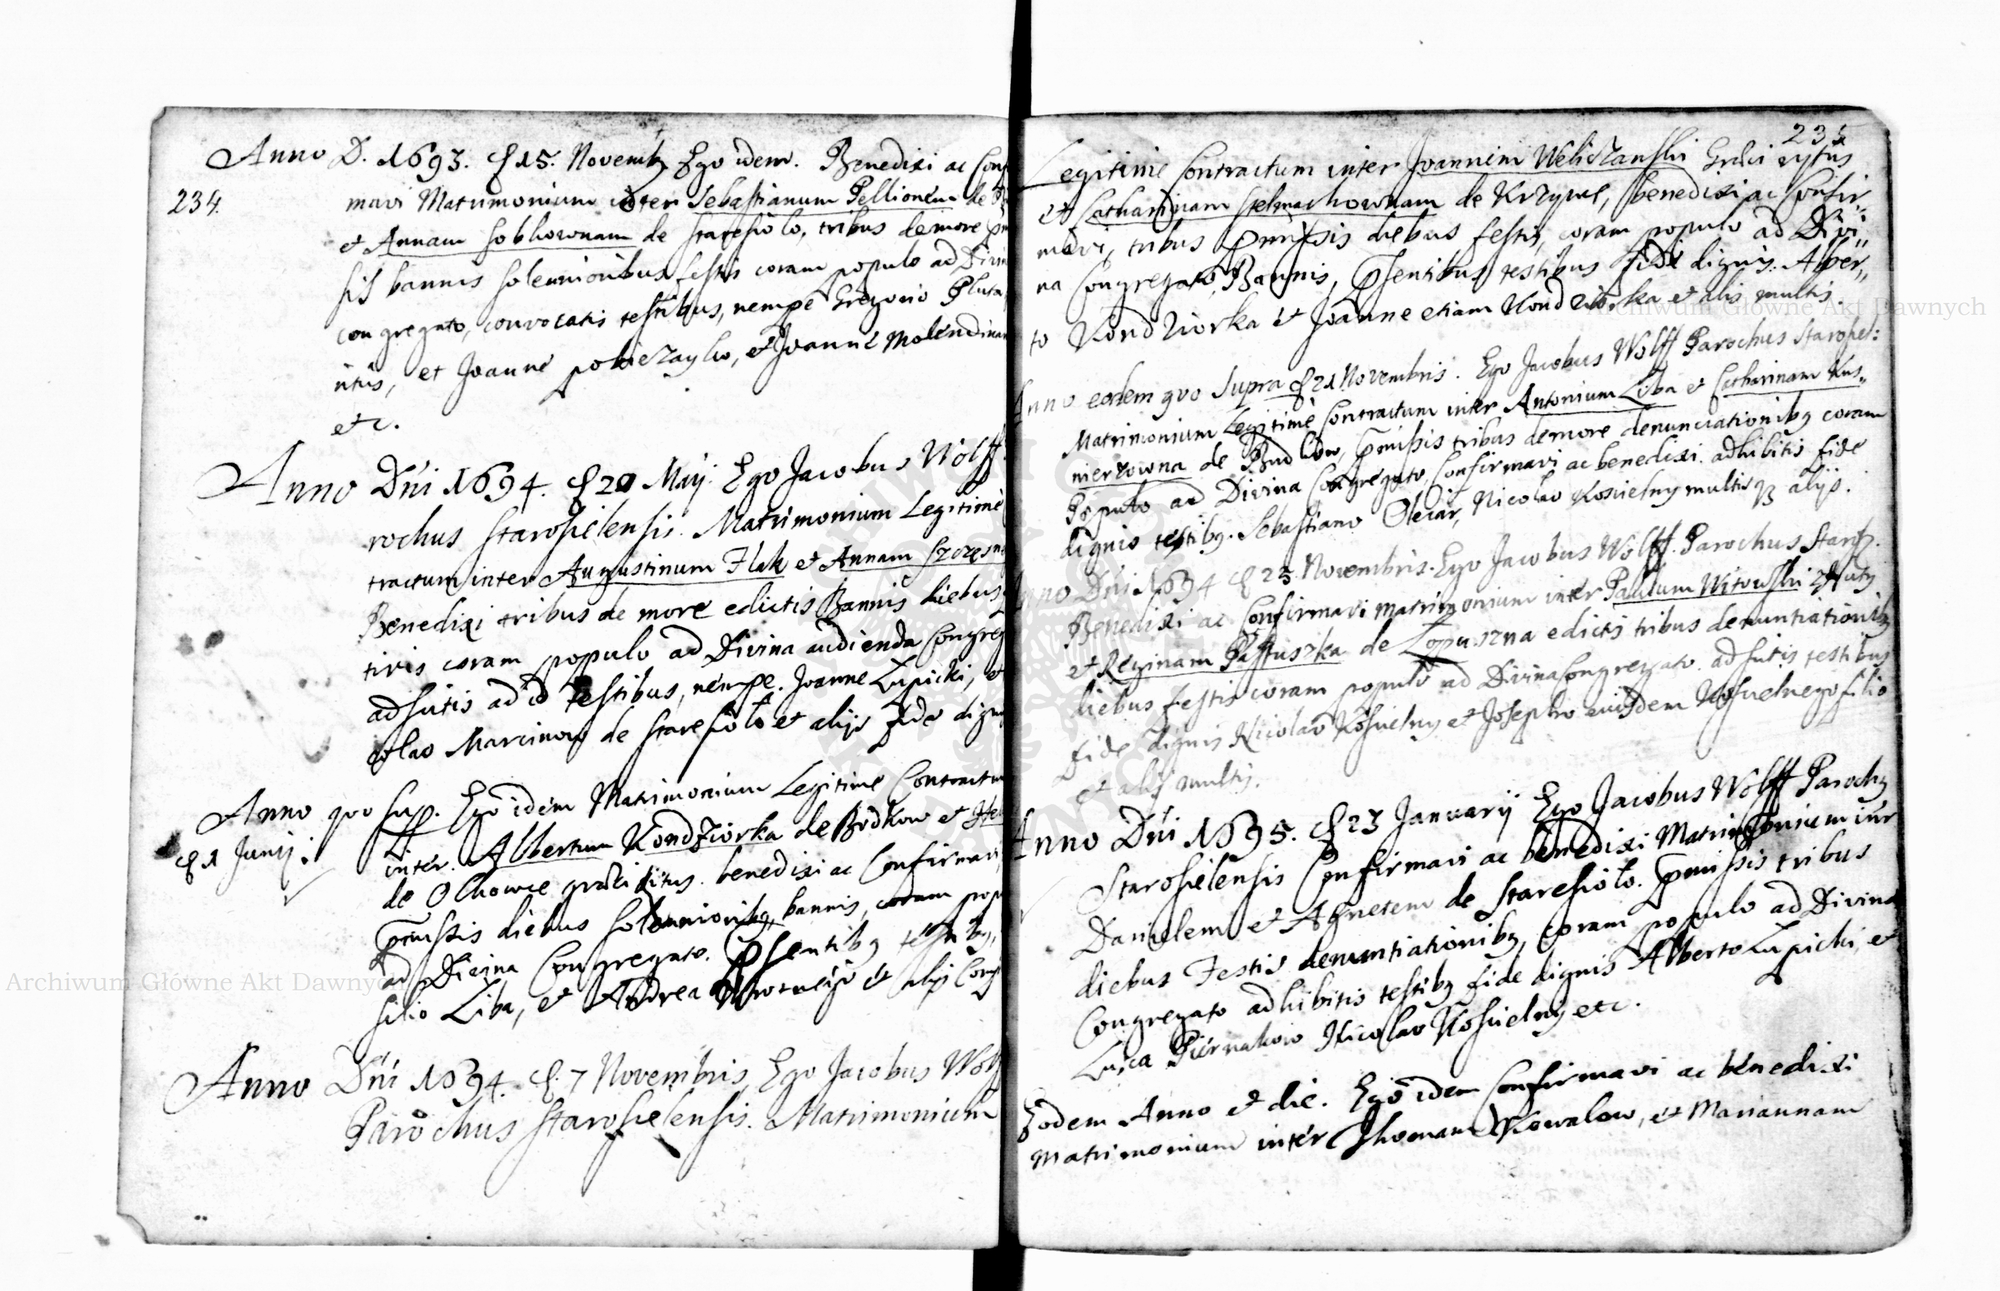 Anno D. 1693. d 15. Novemb. Ego idem. Benedixi ac Conf
234.
mavi Matrimonium inter Sebastianum Pellionem de
et Annam Sobkownam de Staresioło, tribus de more
sis bannis solennioribus festis coram populo ad Divin
congregato, convocatis testibus, nempe Gregorio Pluta
et Joanne et Joanne Molendinar
etc.
Anno Dni 1694. d 20 Maij. Ego Jacobus Wolff
rochus Starosielensis. Matrimonium Legitime
tractum inter Augustinum Flak et Annam Szczęsn
Benedixi tribus de more edictis Bannis diebus
tivis coram populo ad Divina audienda Congreg
adsutis ad id testibus, nempe. Joanne Łupicki, et
Marcinow de Staresioło et alijs fide dign
Anno quo sup. Ego idem Matrimonium Legitime Contractu
d 1 Junij.
inter. Albertum Kondziorka de Brodkow et
de Olchowce græci ritus. benedixi ac Confirmavi,
præmissis diebus solennioribq bannis, coram popu
ad Divina Congregato. Psentibq testibq.
silio Liba, et Andrea et alijs
Anno Dni 1694. d. 7 Novembris, Ego Jacobus Wolf
Parochus Starosielensis. Matrimonium
235
Legitime Contractum inter Joannem Weliczanski Græci ritus
et Catharinam Stelmachownam de Krzywe, benedixi ac Confir„
mavi, tribus præmissis diebus festis, coram populo ad Divi„
na Congregato, Bannis, Psentibus testibus fide dignis. Alber„
to Kondziorka et Joanne etiam Kondziorka et alis multis.
Anno eodem quo supra d 21 Novembris. Ego Jacobus Wolff Parochus Starosiel:
Matrimonium Legitime Contractum inter Antonium Liba et Catharinam Kus„
nierzowna de Brodkow, præmissis tribus de more denunciationibq coram
Populo ad Divina Congregato, Confirmavi ac benedixi. adhibitis fide
dignis testibq. Sebastiano Nicolao Kosielny multisq alijs.
Anno Dni 1694 d 25 Novembris. Ego Jacobus Wolff. Parochus Staros.
Benedixi ac Confirmavi matrimonium inter Paulum Witowski
et Reginam Pastuszka de Łopuszna edictis tribus denuntiationibq
diebus festis coram populo ad Divina Congregato. adsutis testibus
fide dignis Nicolao Kosielny et Josepho eiusdem Kosielnego filio
et alijs multis.
Anno Dni 1695. d 23 Januarij Ego Jacobus Wolff Parochq
Starosielensis Confirmavi ac benedixi Matrimonium inter
Danielem et Agnetem de Staresioło. præmissis tribus
diebus Festis denuntiationibq, coram populo ad Divina
Congregato adhibitis testibq fide dignis Alberto Łupicki, et
Luca Piernakow Nicolao Kosielny etc.
Eodem Anno et die. Ego idem Confirmavi ac benedixi
Matrimonium inter Thomam Kowalow, et Mariannam
Archiwum Główne Akt Dawnych
Archiwum Główne Akt Dawnych